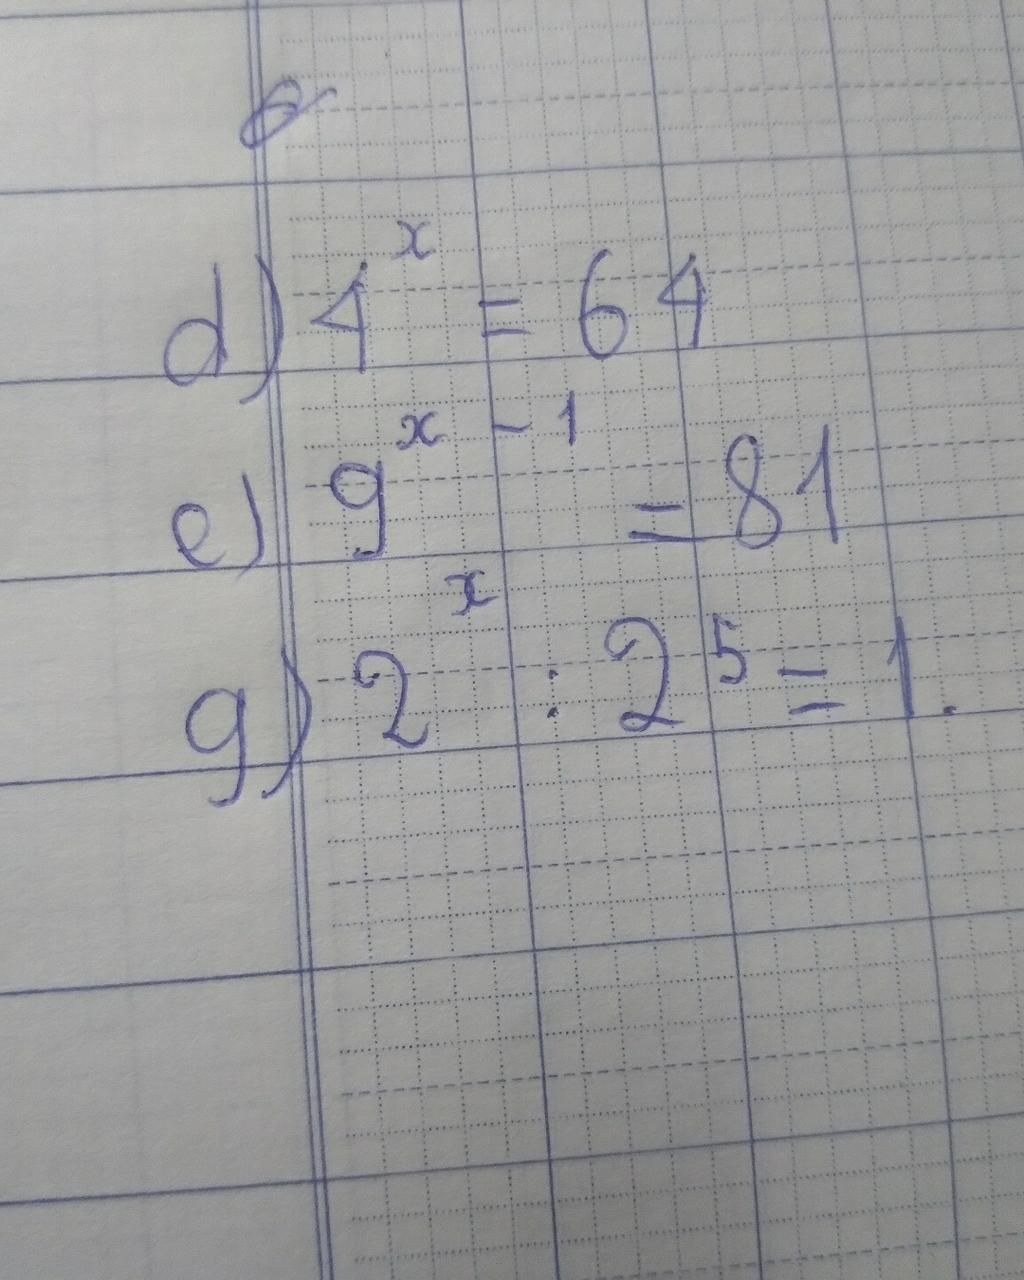 d) 4^x = 64
e) 9^{x - 1} = 81
g) 2^x : 2^5 = 1.